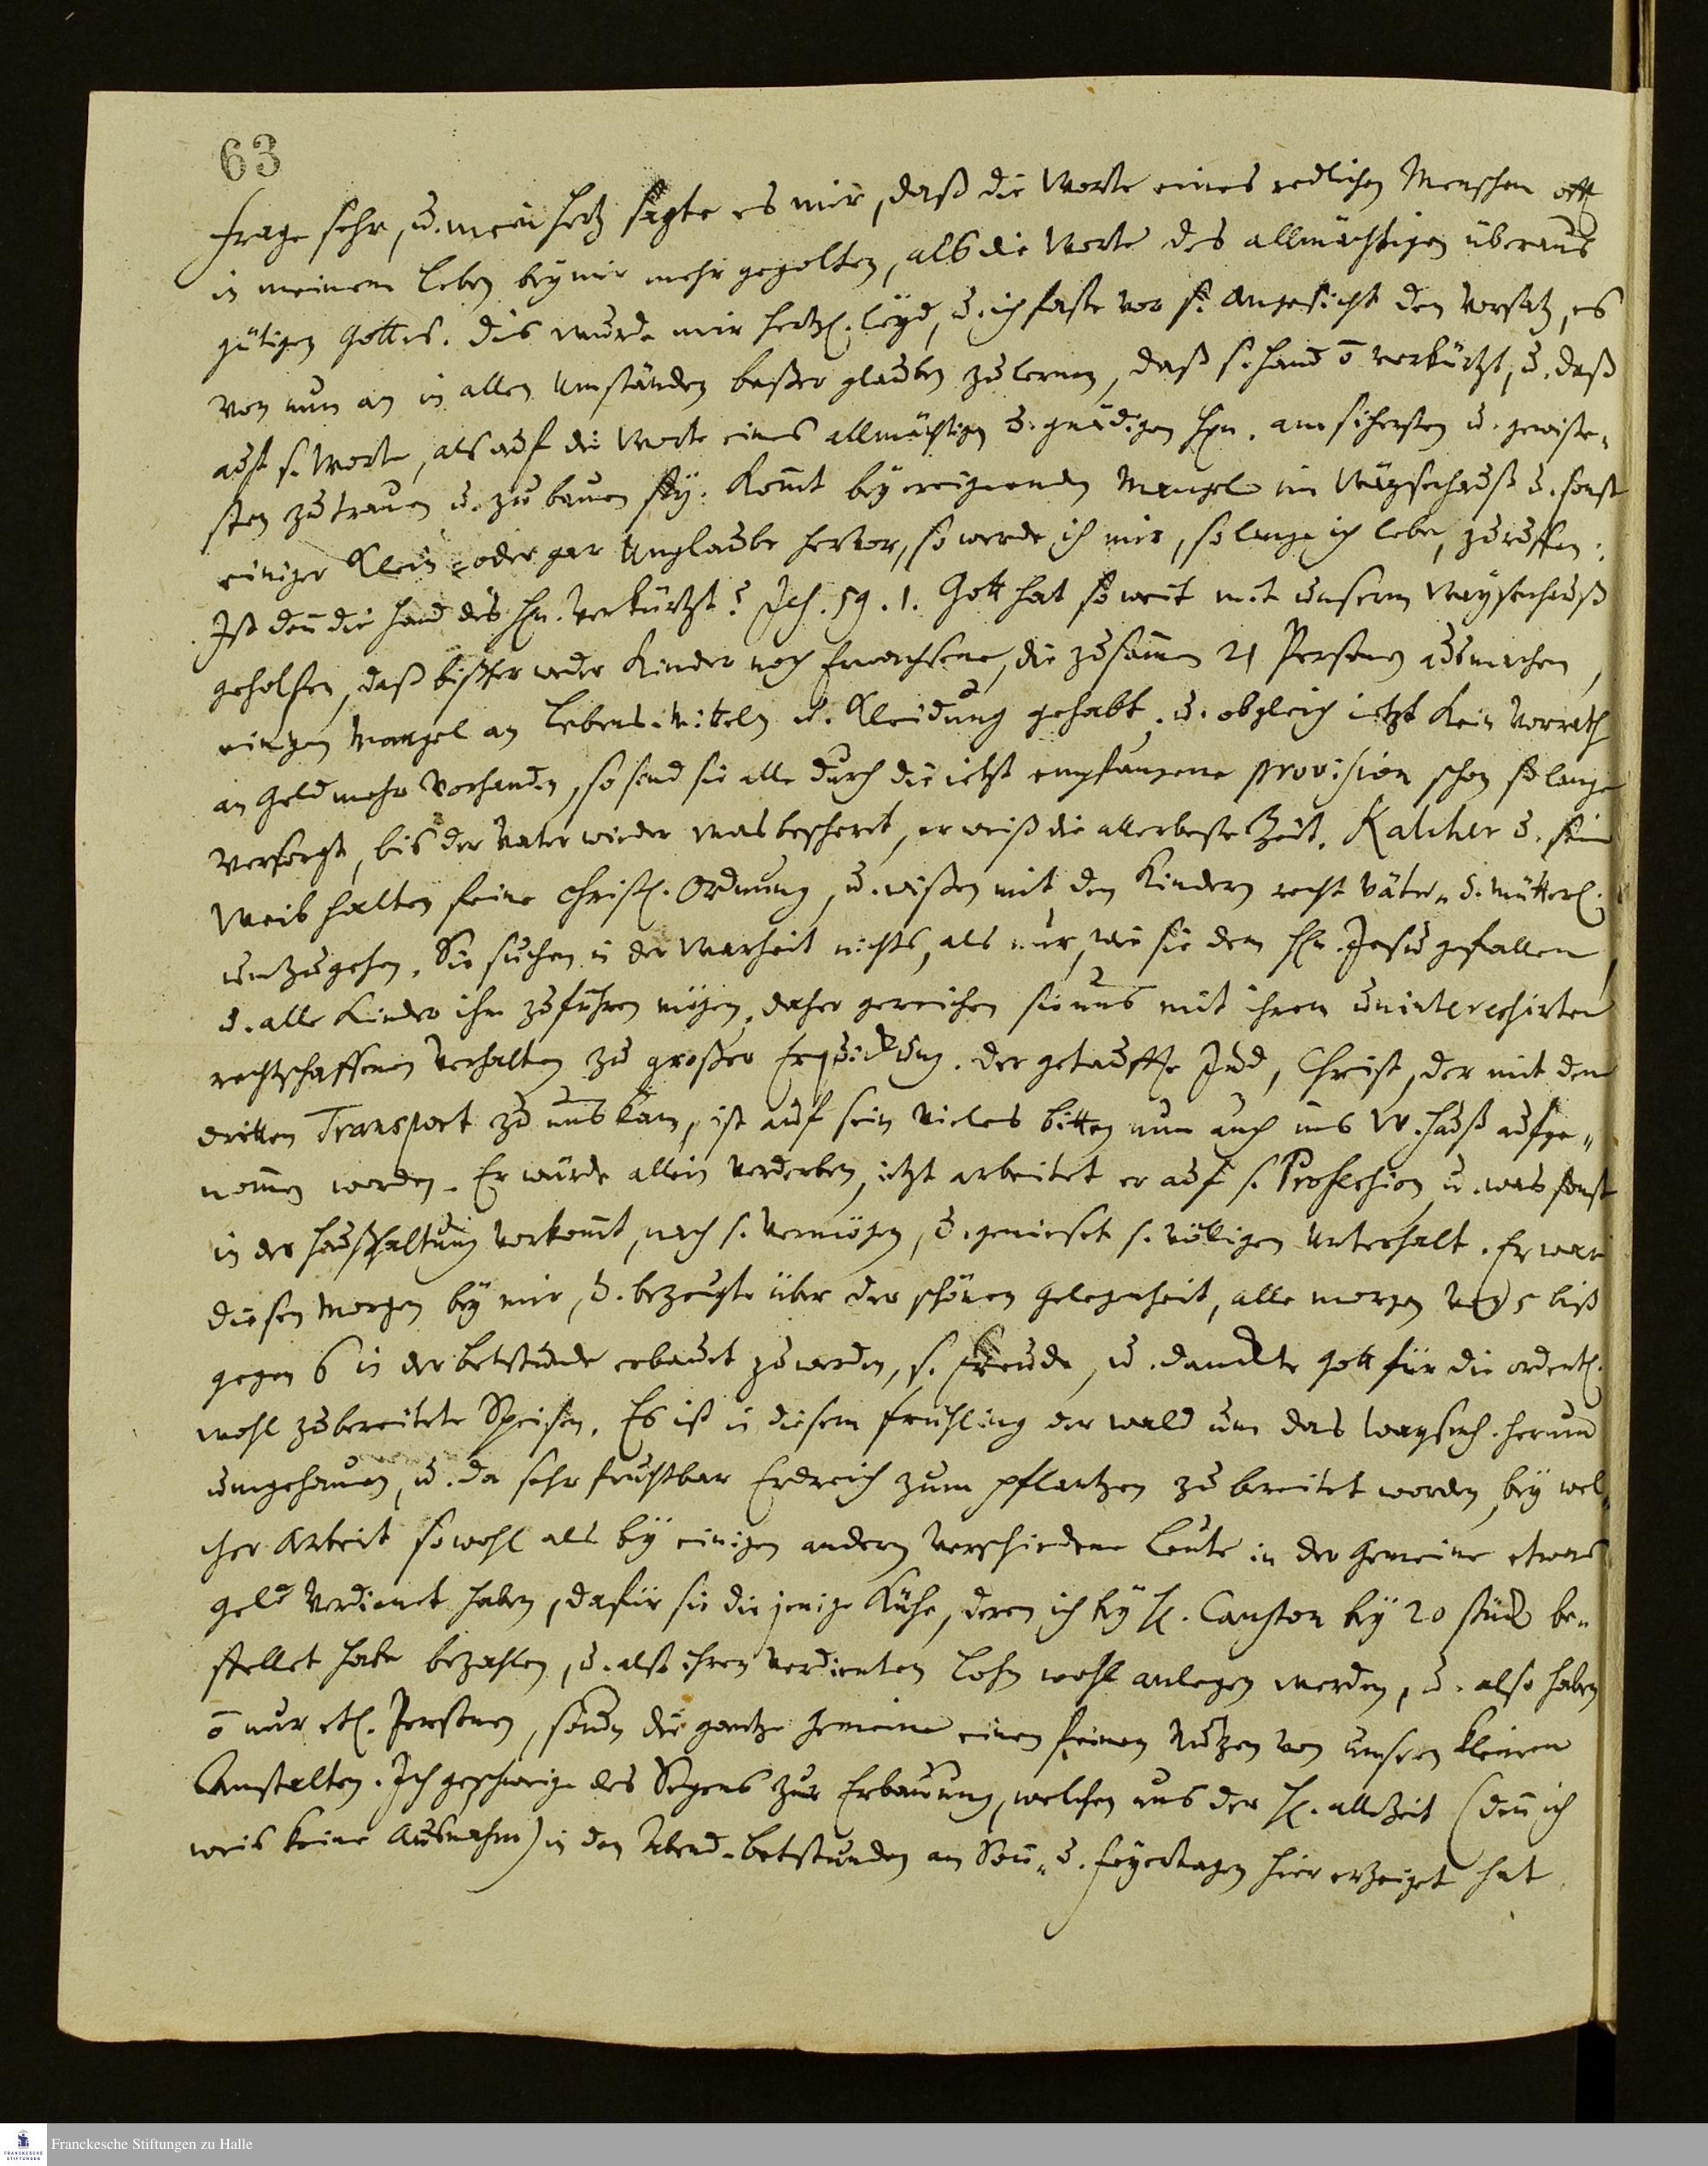 63
Frage sehr, u. mein Hertz sagte es mir, daß die Worte eines redlichen Menschen offt
in meinem Leben bey mir mehr gegolten, alß die Worte des allmächtigen überaus
gütigen Gottes. Dis wurde mir hertzl. leyd, u. ich faste vor s. Angesicht den Vorsatz, es
von nun an in allen Umständen beßer glauben zu lernen, daß s. Hand õ verkürtzt, u. daß
auf s. Worte, als auf die Worte eines allmächtigen u. gnädigen Hrn. am sichersten u. gewiße„
sten zu trauen u. zu bauen sey. Komt bey ereignenden Mangel im Waysenhauß u. sonst
einiger Klein- oder gar Unglaube hervor, so werde ich mir, so lange ich lebe, zuruffen:
Ist den die Hand des Hn. verkürtzt? Jes. 59. 1. Gott hat so weit mit unserm Waysenhauß
geholfen, daß bißher weder Kinder noch Erwachsene, die zusamen 21 Persohnen ausmachen,
einigen Mangel an Lebens-Mitteln u. Kleidung gehabt, u. obgleich ietzt kein Vorrath
an Geld mehr vorhanden, so sind sie alle durch die ietzt empfangene provision schon so lange
versorgt, bis der Vater wieder was bescheret, er weiß die allerbeste Zeit. Kalcher u. sein
Weib halten feine Christl. Ordnung, u. wißen mit den Kindern recht väter„ u. mütterl.
umzugehen. Sie suchen in der Warheit nichts, als nur, wie sie dem Hn. Jesu gefallen,
u. alle Kinder ihm zuführen mögen, daher gereichen sie uns mit ihrem uninteressirten
rechtschaffenen Verhalten zu großer Erquickung. Der getauffte Jud, Christ, der mit dem
dritten Transport zu uns kam, ist auf sein vieles bitten nun auch ins W. Hauß aufge„
nomen worden. Er würde allein verderben, ietzt arbeitet er auf s. Profession u. was sonst
in der Haußhaltung vorkomt, nach s. Vermögen, u. genießet s. völligen Unterhalt. Er war
diesen Morgen bey mir, u. bezeugte über der schönen Gelegenheit, alle morgen nach 5 biß
gegen 6 in der Betstunde erbauet zu werden, s. Freude, u. danckte Gott für die ordentl.
wohl zubereitete Speisen. Es ist in diesem Frühling der Wald um das Waysenh. herum
umgehauen, u. da sehr fruchtbar Erdreich zum pflantzen zubereitet worden, bey wel„
cher Arbeit sowohl als bey einigen andern verschiedene Leute in der Gemeine etwas
Geld verdienet haben, dafür sie diejenige Kühe, deren ich bey H. Causton bey 20 stück be„
stellet habe bezahlen, u. alß ihren verdienten Lohn wohl anlegen werden, u. also haben
õ nur etl. Personen, sondn die gantze Gemeine einen feinen Nutzen von unsern kleinen
Anstalten. Ich geschweige des Segens zur Erbauung, welchen uns der H. allzeit (den ich
weis keine Ausnahm) in den Abend-Betstunden an Son„ u. Feyertagen hier erzeiget hat.
Franckesche Stiftungen zu Halle